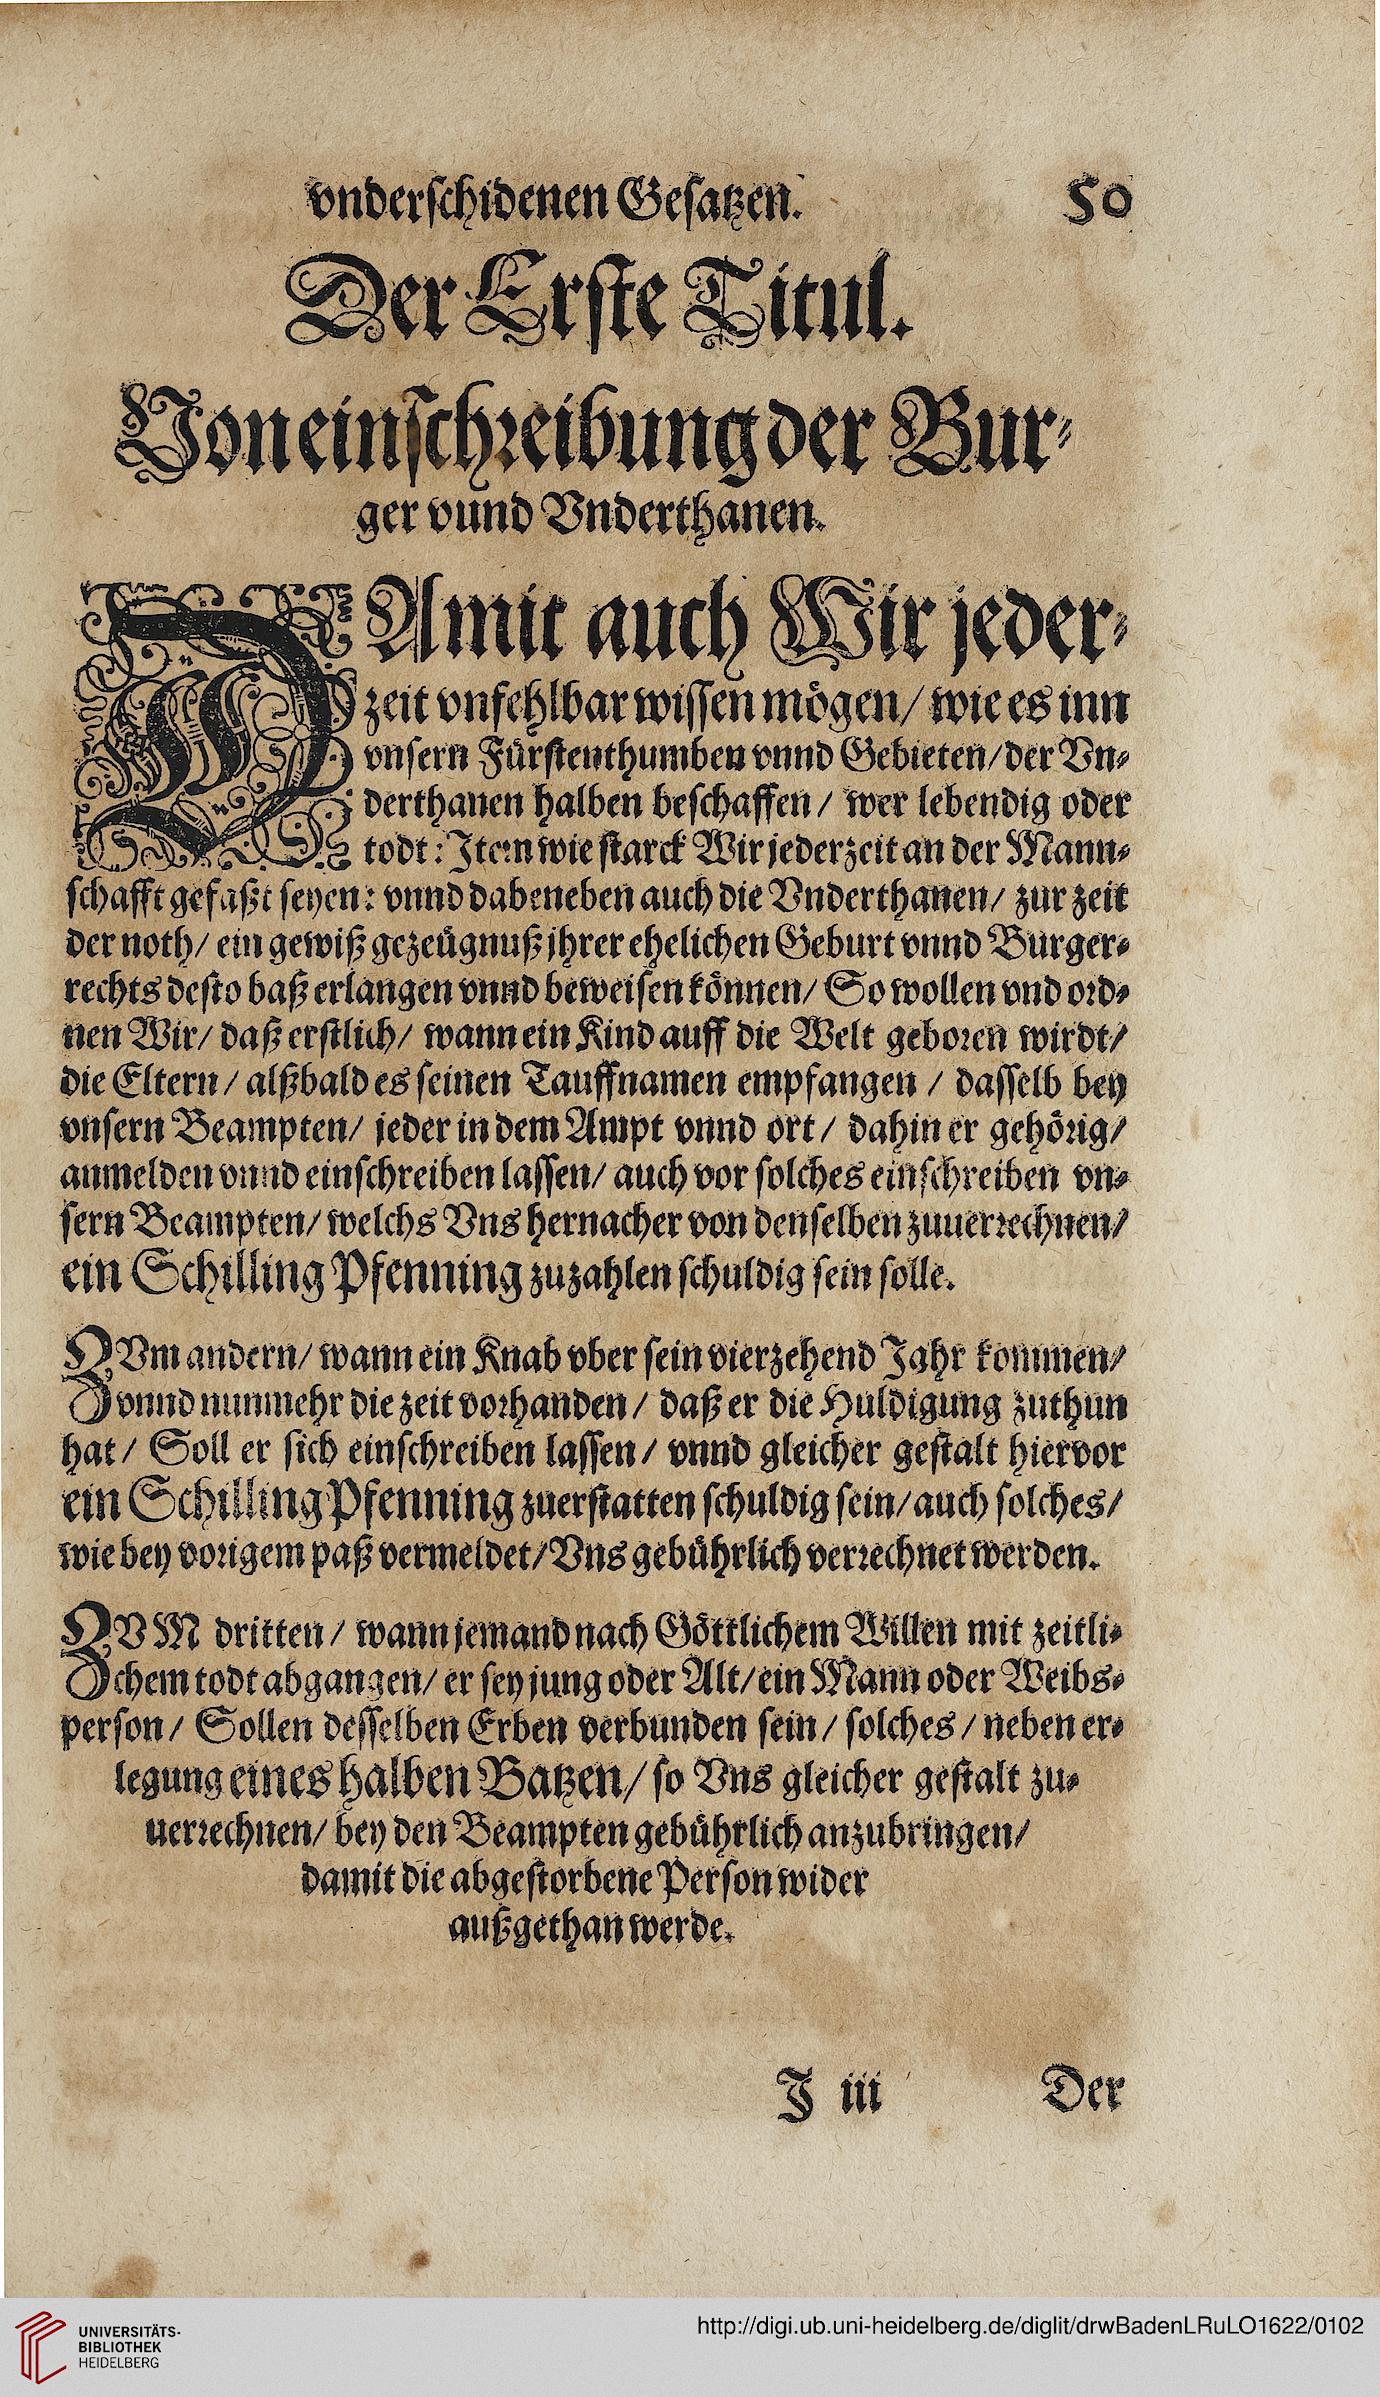 vnderschidenen Gesatzen. 50
Der Erste Titul.
Von einschreibung der Bur-
ger vnnd Vnderthanen.
DAmit auch Wir jeder-
zeit vnfehlbar wissen mögen/ wie es inn
vnsern Fürstenthumben vnnd Gebieten/ der Vn-
derthanen halben beschaffen/ wer lebendig oder
todt: Item wie starck Wir jederzeit an der Mann-
schafft gefaßt seyen: vnnd dabeneben auch die Vnderthanen/ zur zeit
der noth/ ein gewiß gezeügnuß jhrer ehelichen Geburt vnnd Burger-
rechts desto baß erlangen vnnd beweisen können/ So wollen vnd ord-
nen Wir/ daß erstlich/ wann ein Kind auff die Welt geboren wirdt/
die Eltern/ alßbald es seinen Tauffnamen empfangen/ dasselb bey
vnsern Beampten/ jeder in dem Ampt vnnd ort/ dahin er gehörig/
anmelden vnnd einschreiben lassen/ auch vor solches einschreiben vn-
sern Beampten/ welchs Vns hernacher von denselben zuuerrechnen/
ein Schilling Pfenning zuzahlen schuldig sein solle.
ZVm andern/ wann ein Knab vber sein vierzehend Jahr kommen/
vnnd nunmehr die zeit vorhanden/ daß er die Huldigung zuthun
hat/ Soll er sich einschreiben lassen/ vnnd gleicher gestalt hiervor
ein Schilling Pfenning zuerstatten schuldig sein/ auch solches/
wie bey vorigem paß vermeldet/ Vns gebührlich verrechnet werden.
ZVM dritten/ wann jemand nach Göttlichem Willen mit zeitli-
chem todt abgangen/ er sey jung oder Alt/ ein Mann oder Weibs-
person/ Sollen desselben Erben verbunden sein/ solches/ neben er-
legung eines halben Batzen/ so Vns gleicher gestalt zu-
uerrechnen/ bey den Beampten gebührlich anzubringen/
damit die abgestorbene Person wider
außgethan werde.
J iii Der
UNIVERSITÄTS-
BIBLIOTHEK
HEIDELBERG
http://digi.ub.uni-heidelberg.de/diglit/drwBadenLRuLO1622/0102